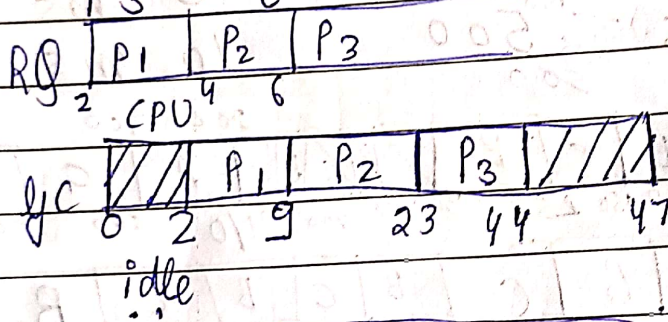 RQ P1 P2 P3
2 4 6
CPU
GC P1 P2 P3
0 2 9 23 44 47
idle